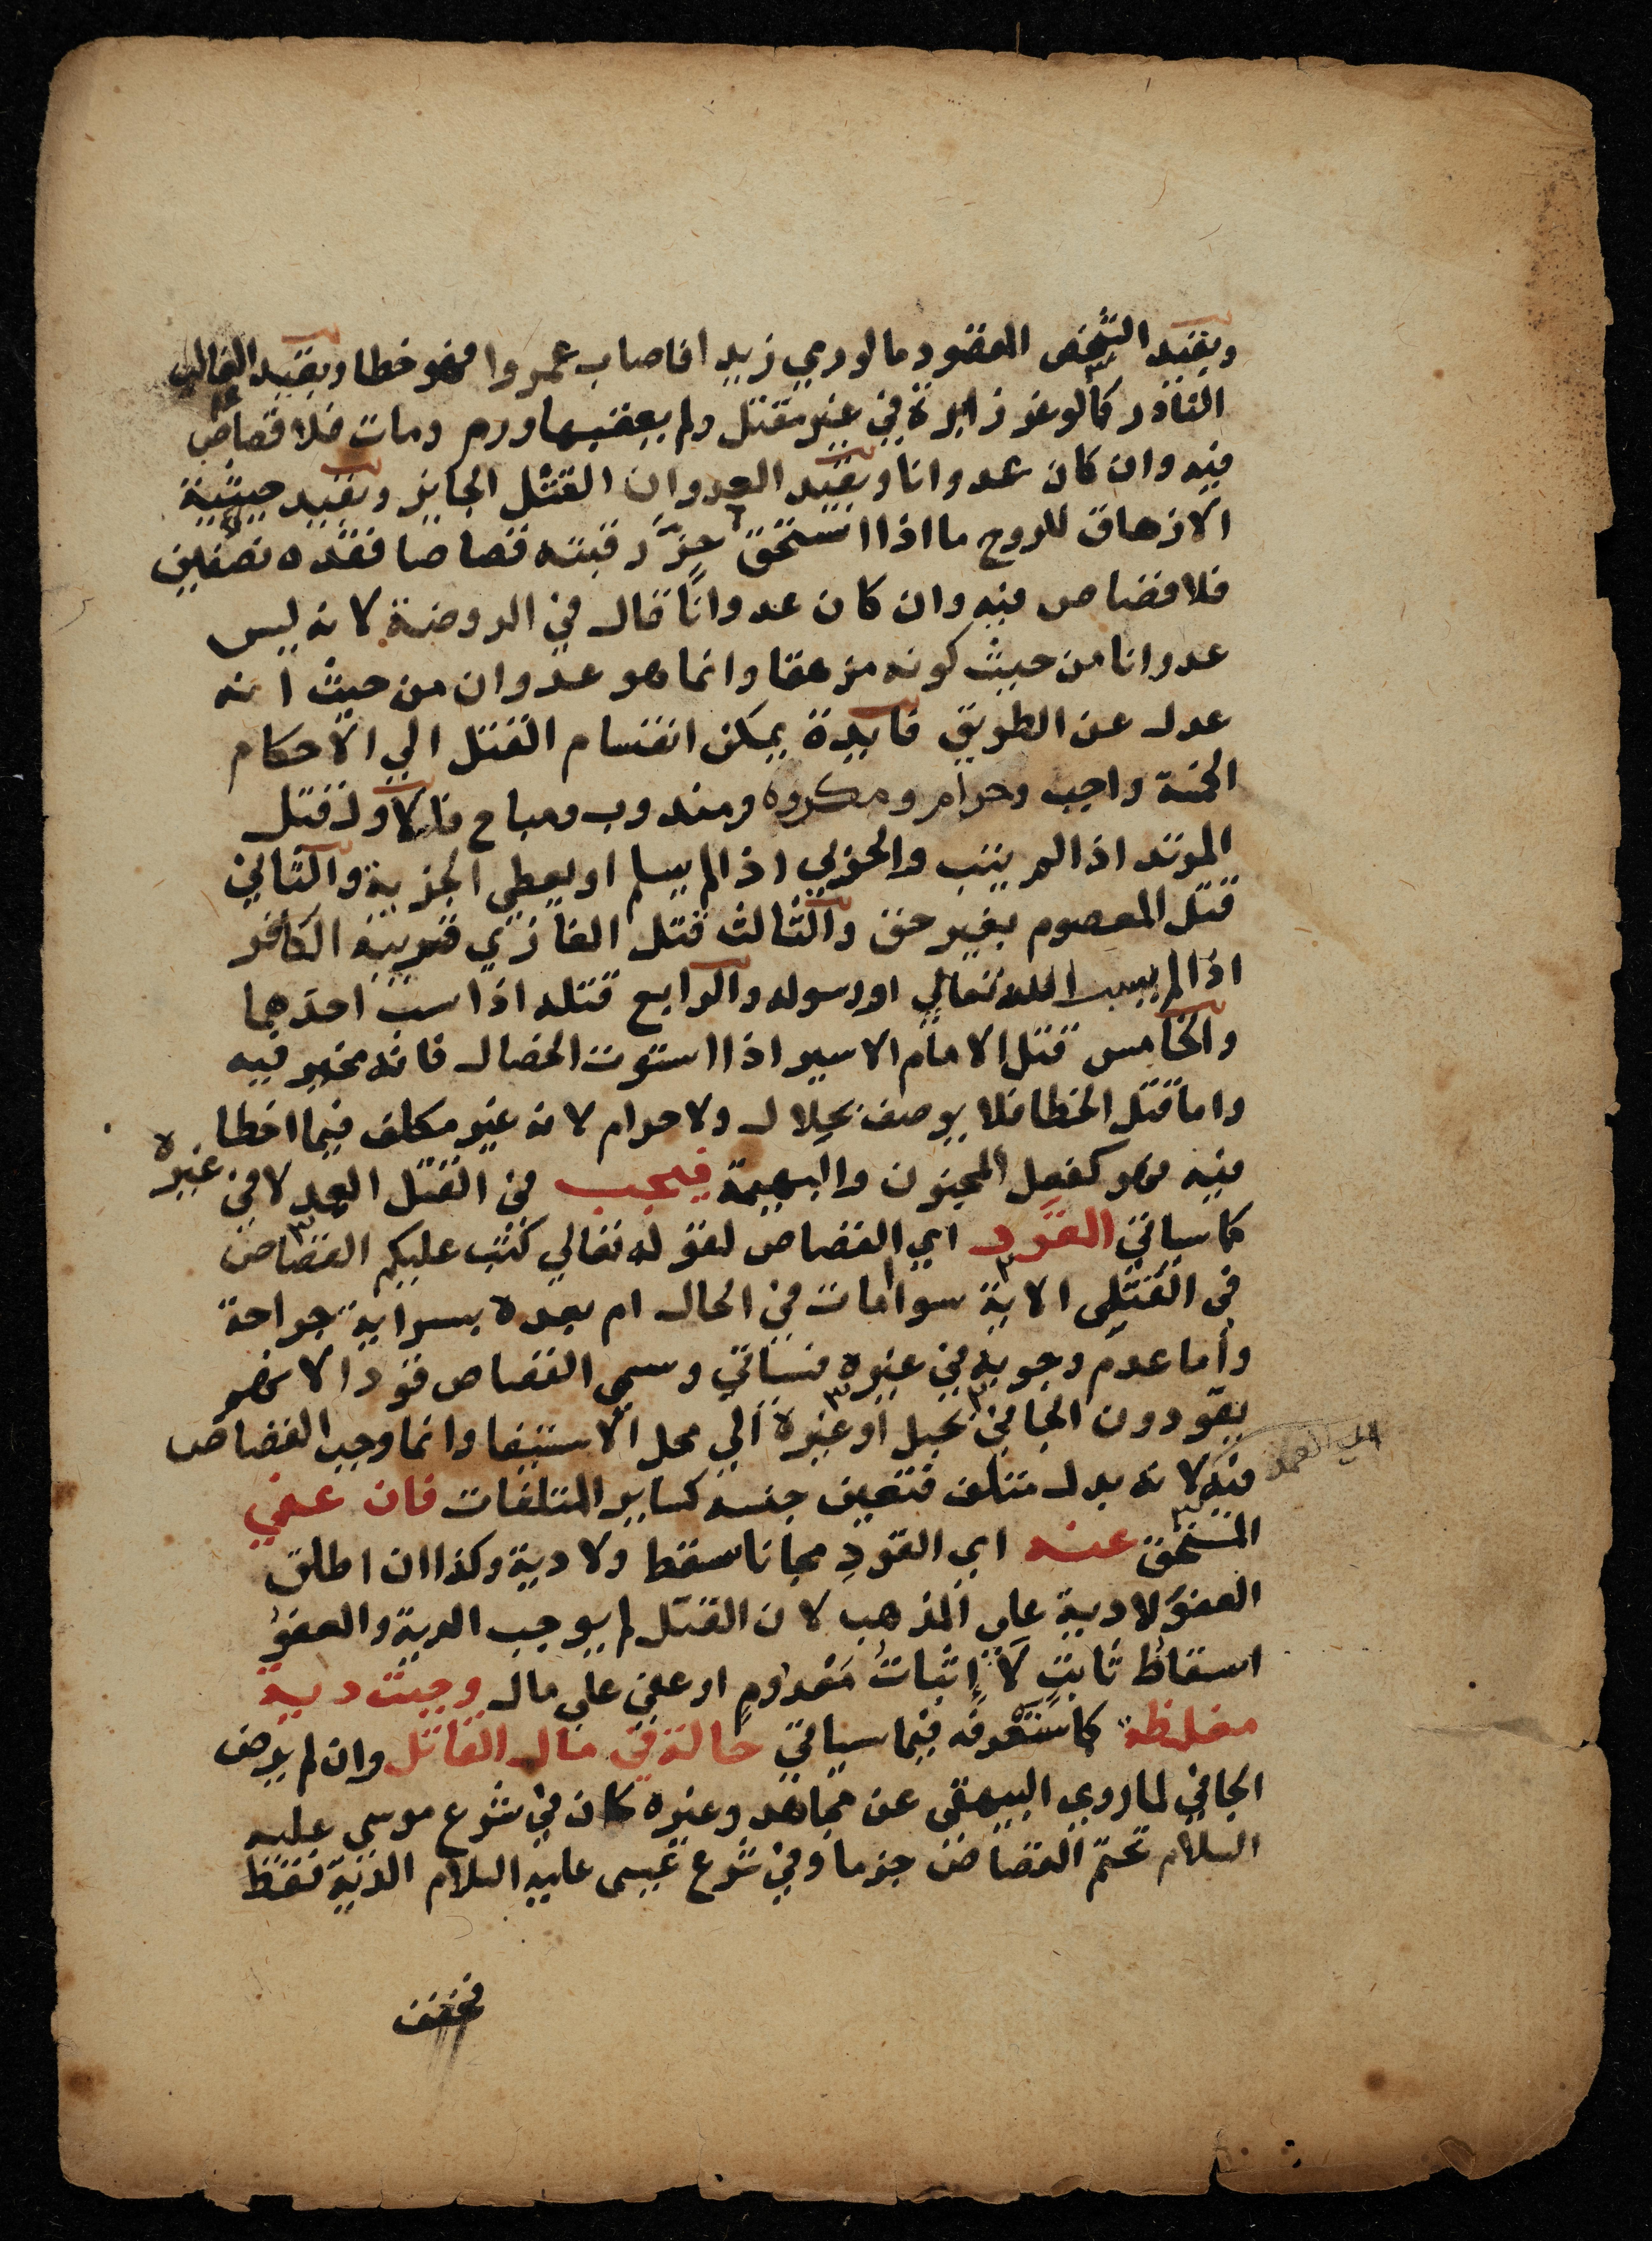 وبقيد الشخص المقصود ما لو رمي زيدا فاصاب عمروا فهو خطا وبقيد الغالب
النادر كما لو غرز ابرة في غير مقتل ولم يعقبها ورم ومات فلا قصاص
فيه وان كان عدوانا وبقيد العدوان القتل الجايز وبقيد حيثية
الازهاق للروح ما اذا استحق حزَّ رقبته قصاصا فقده نصفين
فلا قصاص فيه وان كان عدوانًا قال في الروضة لانه ليس
عدوانا من حيث كونه مزهقا وانما هو عدوان من حيث انه
عدل عن الطريق فايدة يمكن انقسام القتل الي الاحكام
الخمسة واجب وحرام ومكروه ومندوب ومباح فالاول قتل
المرتد اذا لم يتب والحربي اذا لم يسلم او يعطي الجزية والثاني
قتل المعصوم بغير حق والثالث قتل الغازي قريبه الكافر
اذا لم يسب الله تعالي او رسوله والرابع قتله اذا سب احدهما
والخامس قتل الامام الاسير اذا استوت الخصال فانه مخير فيه
واما قتل الخطا فلا يوصف بحلال ولا حرام لانه غير مكلف فيما اخطا
فيه فهو كفعل المجنون والبهيمة فيجب في القتل العمد لا في غيره
كما سياتي القَوَد اي القصاص لقوله تعالي كتب عليكم القصاص
في القَتْلِى الاية سوا مات في الحال ام بعده بسراية جراحة
وأما عدم وجوبه في غيره فسياتي وسمي القصاص قودا لانهم
يقودون الجاني بحبل أو غيره الي محل الاستيفا وانما وجب القصاص
فيه لانه بدل متلف فتعين جنسه كساير المتلفات فان عفي
المستحق عنه اي القودِ مجانا سقط ولا دية وكذا ان اطلق
العفو لا دية علي المذهب لان القتل لم يوجب الدية والعفوُ
اسقاطُ ثابتٍ لَا إثباتُ مَعْدومٍ او عفي علي مال وجبت دية
مغلظة كما سَتَعْرفه فيما سياتي حالة في مال القاتل وان لم يرض
الجاني لما روي البيهقى عن مجاهد وغيره كان في شرع موسى عليه
السلام تحتم القصاص جزما وفي شرع عيسى عليه السلام الدية فقط
فخفف